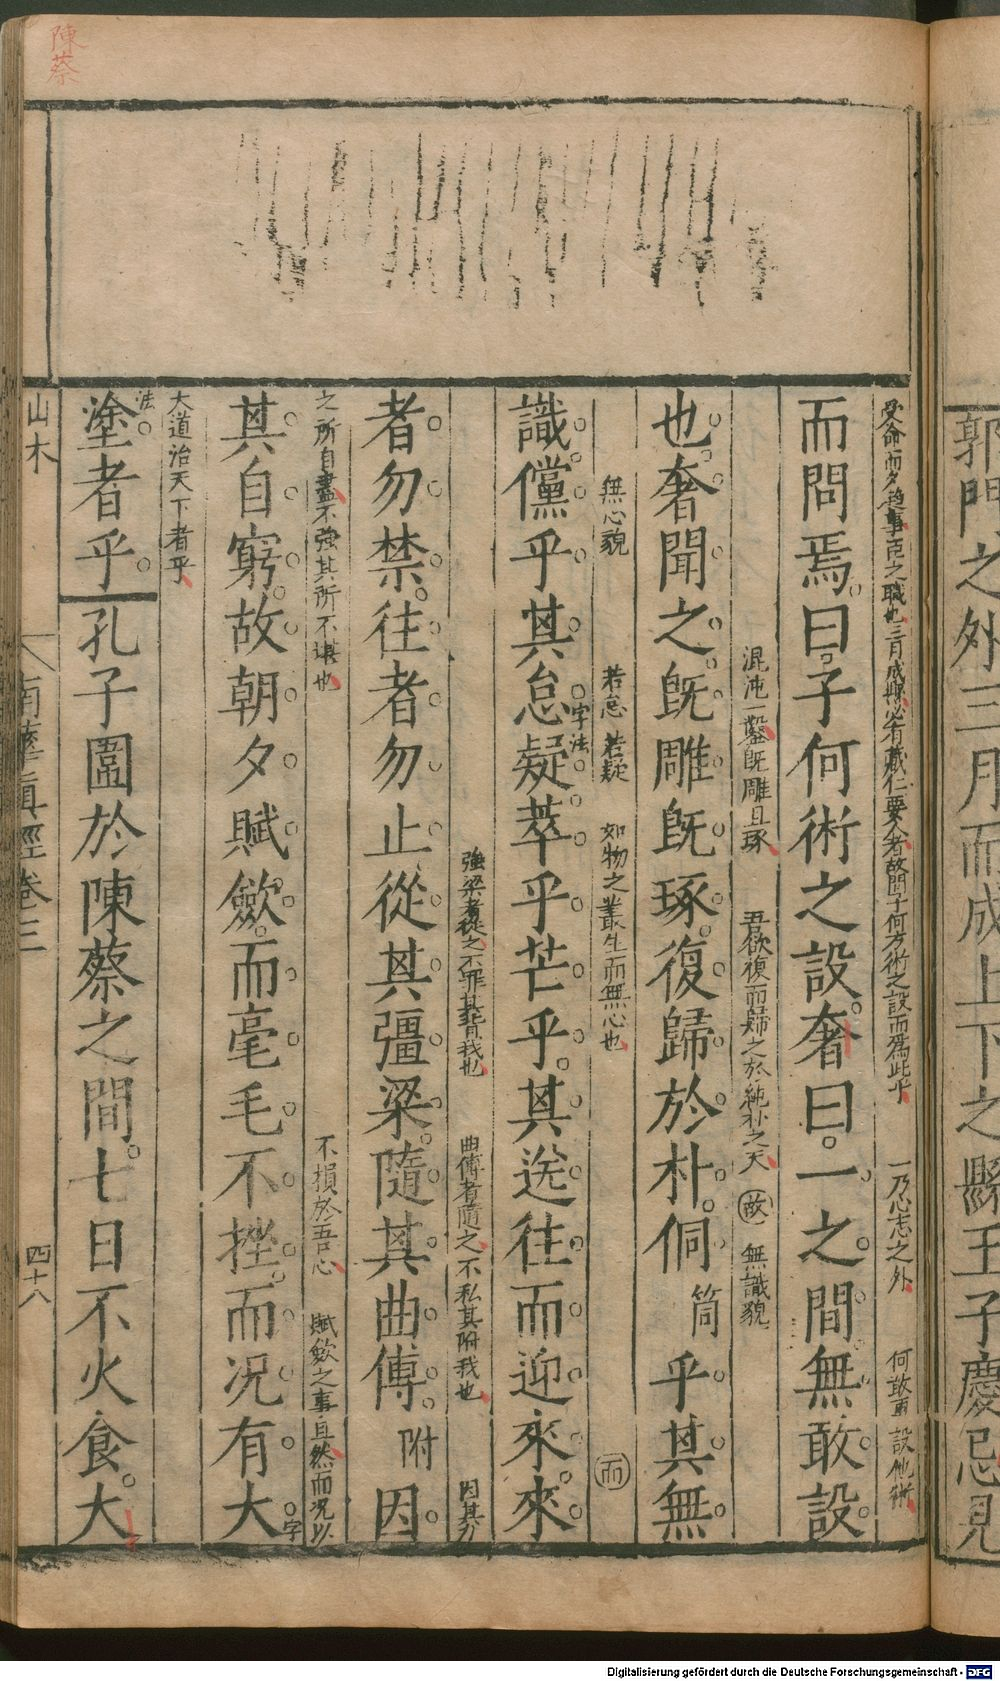 陳蔡
受命而夕造事臣之職也三月成縣必有藏仁要人者故問子何方術之設而為此乎 一乃心志之外 何敢更設他術
而問焉曰子何術之設奢曰一之間無敢設
混沌一鑿既雕且琢 吾欲復而歸之於純朴之天 故 無識貌
也奢聞之旣雕旣琢復歸於朴侗筒乎其無
無心貌 若怠若疑 如物之叢生而無心也 而
識儻乎其怠疑萃乎芒乎其送往而迎來來
字法
強梁者從之不罪其背我也 曲傅者隨之不私其附我也 因其力
者勿禁往者勿止從其彊梁隨其曲傅附因
之所自盡不強其所不堪也 不損於吾心 賦斂之事且然而况以
其自窮故朝夕賦斂而毫毛不挫而况有大
字
大道治天下者乎
法
塗者乎孔子圍於陳蔡之間七日不火食大
山木 南華眞經卷三 四十八
郭門之外三月而成上下之縣王子慶忌見
Digitalisierung gefördert durch die Deutsche Forschungsgemeinschaft - DFG